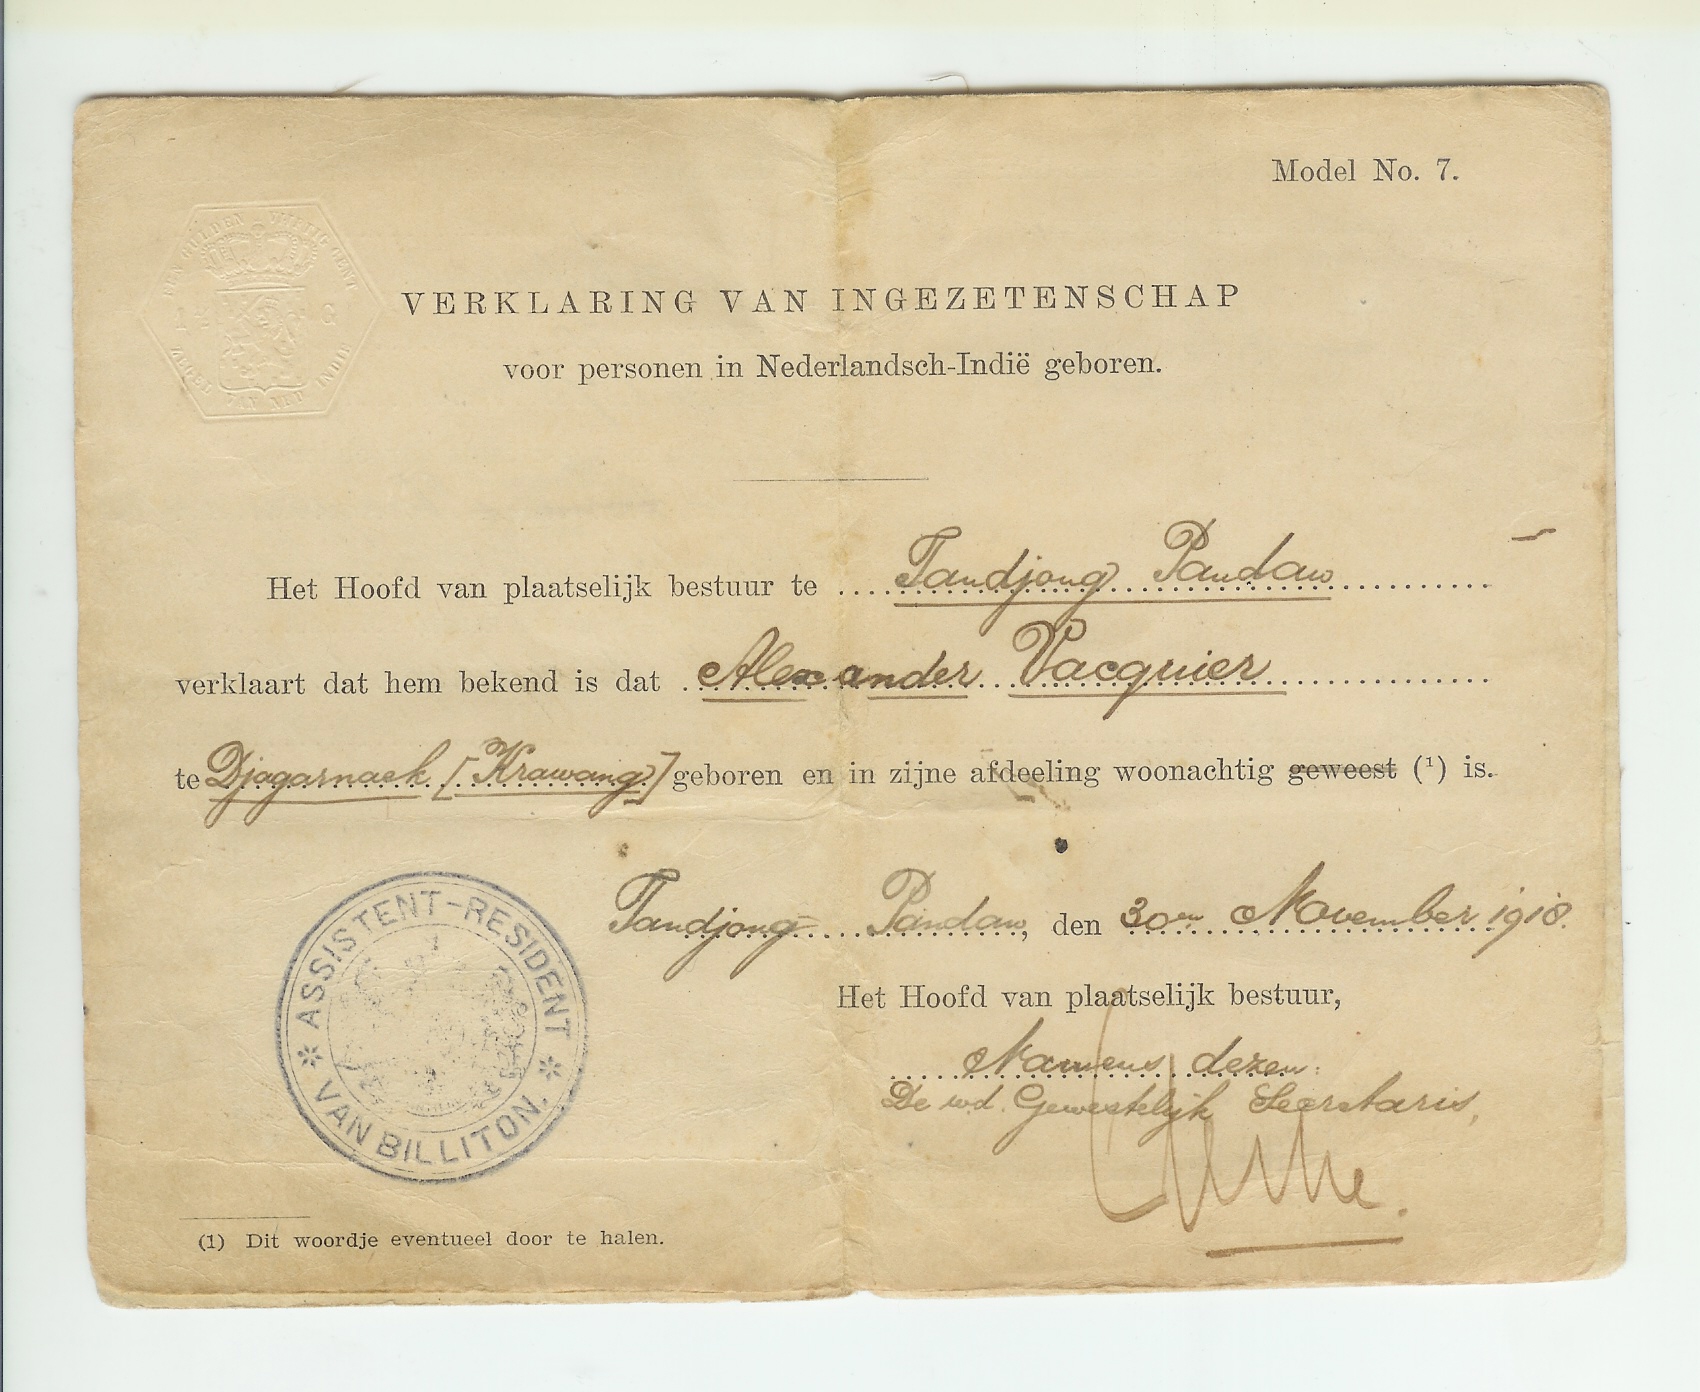 Model No. 7.
EEN GULDEN VIJFTIG CENT
1½ G
ZEGEL VAN NED INDIE
VERKLARING VAN INGEZETENSCHAP
voor personen in Nederlandsch-Indië geboren.
Het Hoofd van plaatselijk bestuur te Tandjong Pandan
verklaart dat hem bekend is dat Alexander Vacquier
te Djagarnaek [Krawang] geboren en in zijne afdeeling woonachtig geweest (¹) is.
Tandjong Pandan, den 30en November 1918.
ASSISTENT-RESIDENT
VAN BILLITON.
Het Hoofd van plaatselijk bestuur,
Namens dezen:
De wd. Gewestelijk Secretaris,
(1) Dit woordje eventueel door te halen.